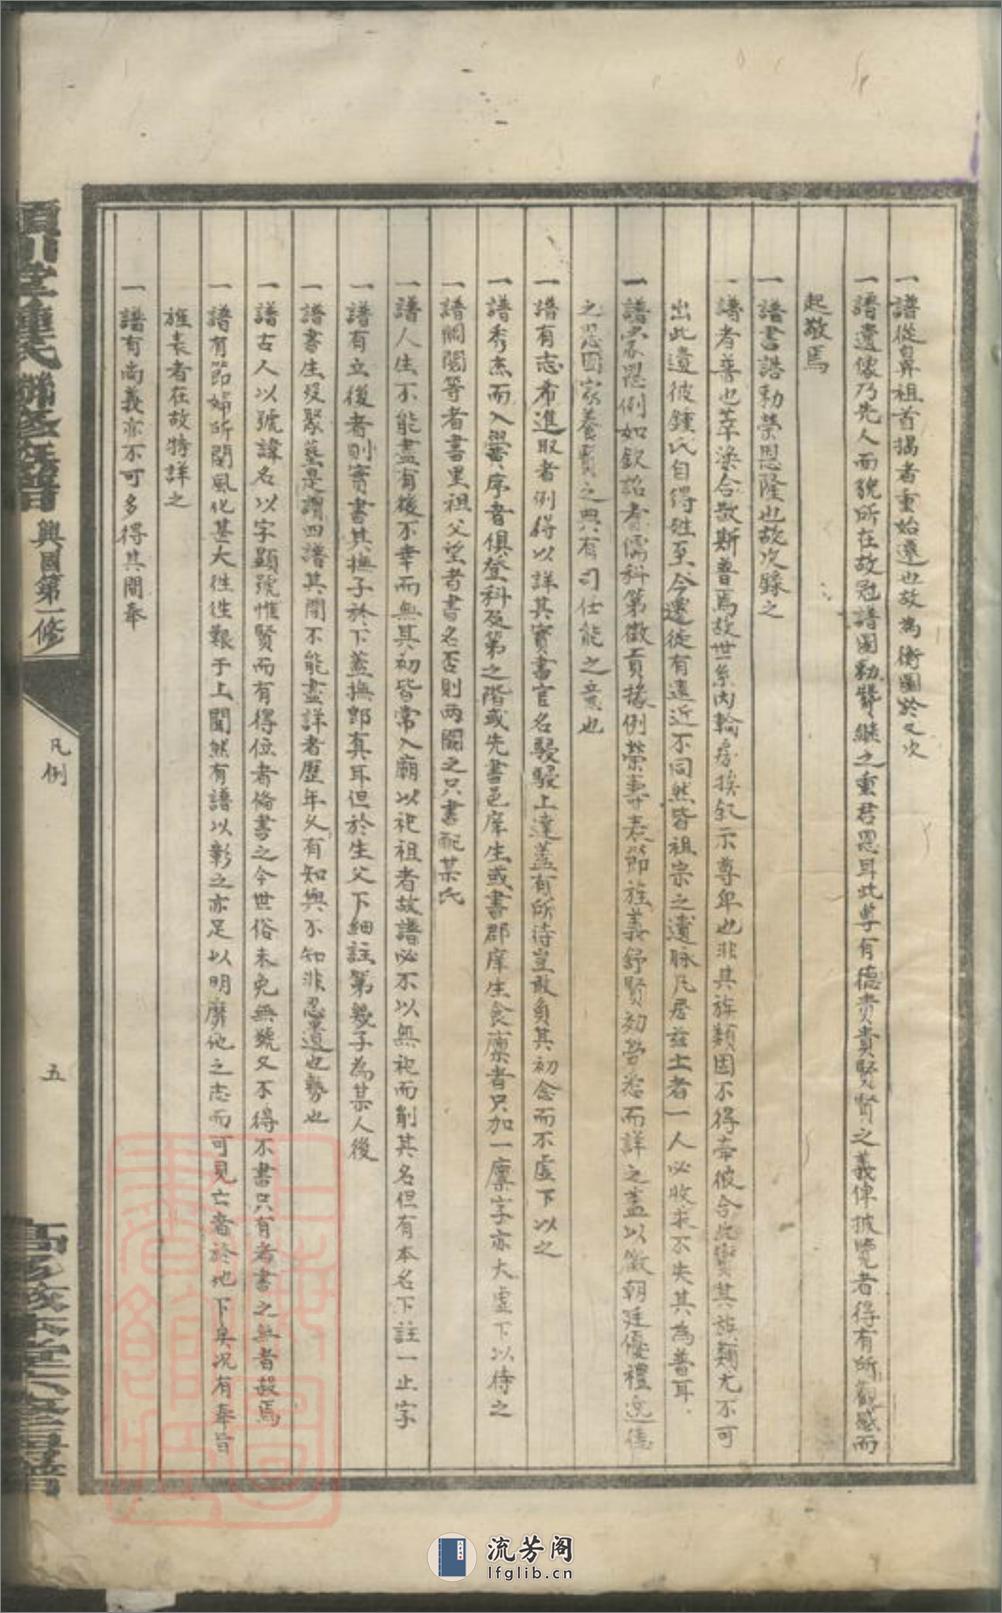 一譜從鼻祖首揭者重始遷也故為衡圖於又次
一譜遺像乃先人而貌所在故冠譜圖勅贊繼之重君恩耳此尊有德貴貴賢賢之義俾披覽者得有所觀感而
起敬焉
一譜書誥勅榮恩隆也故次錄之
一譜者普也萃渙合散斯普焉故世系內輪房挨敘示尊卑也非其族類固不得牽彼合此實其族類尤不可
出此遺彼鍾氏自得姓至今遷徙有遠近不同然皆祖宗之遺脉凡居茲土者一人必收求不失其為普耳
一譜蒙恩例如欽詔者儒科第徵貢援例榮壽表節旌義舒賢効勞悉而詳之蓋以徵朝廷優禮逸德
之恩國家養賢之典有司仕能之意也
一譜有志希進取者例得以詳其實書官名駸駸上達蓋有所待豈敢負其初念而不虛下以之
一譜秀杰而入黌序者俱登科及第之階或先書邑庠生或書郡庠生食廩者只加一廩字亦大虛下以待之
一譜閥閱等者書里祖父望者書名否則两闕之只書配某氏
一譜人生不能盡有後不幸而無其初皆常入廟以祀祖者故譜必不以無祀而削其名但有本名下註一止字
一譜有立後者則實書其撫子於下蓋撫即真耳但於生父下細註第幾子為某人後
一譜書生歿娶葬是謂四譜其間不能盡詳者歷年久有知與不知非忍遺也勢也
一譜古人以號諱名以字顯號惟賢而有得位者俻書之今世俗未免無號又不得不書只有者書之無者設焉
一譜有節婦所關風化甚大往往艱于上聞然有譜以彰之亦足以明靡他之志而可見亡者於地下矣况有奉旨
旌表者在故特詳之
一譜有尚義亦不可多得其間奉
潁川堂鍾氏聯修族譜
興國第一修
凡例
五
流芳阁
lfglib.cn